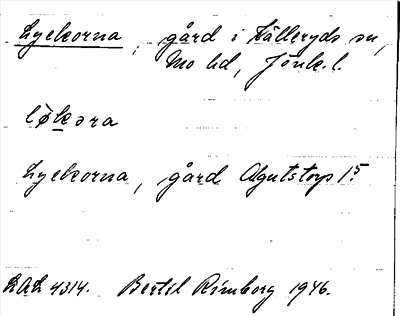 Lyckorna, gård i Källeryds sn,
Mo hd, Jönk. l.
lø̀kəra
Lyckorna, gård Agutstorp 1⁵
LAL 4314. Bertil Rimborg 1946.